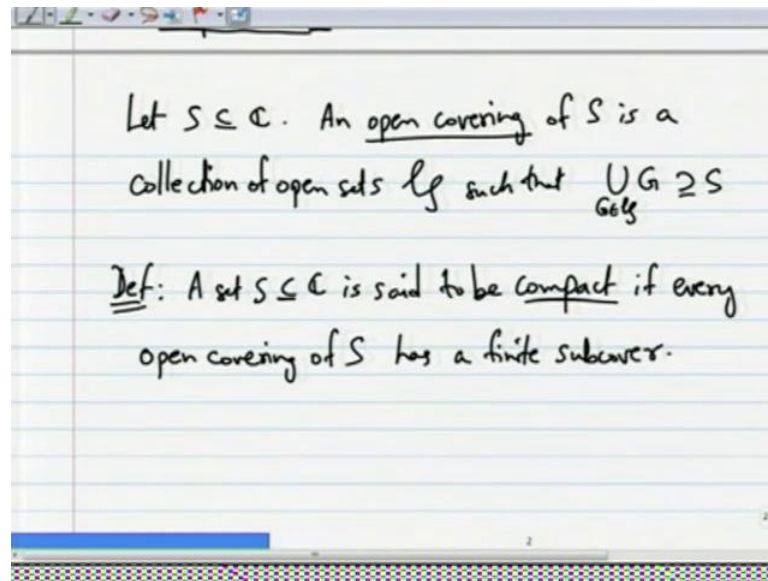 Let S ⊆ ℂ. An open covering of S is a
collection of open sets 𝒢 such that ⋃ G ⊇ S
G∈𝒢
Def: A set S ⊆ ℂ is said to be compact if every
open covering of S has a finite subcover.
2
2